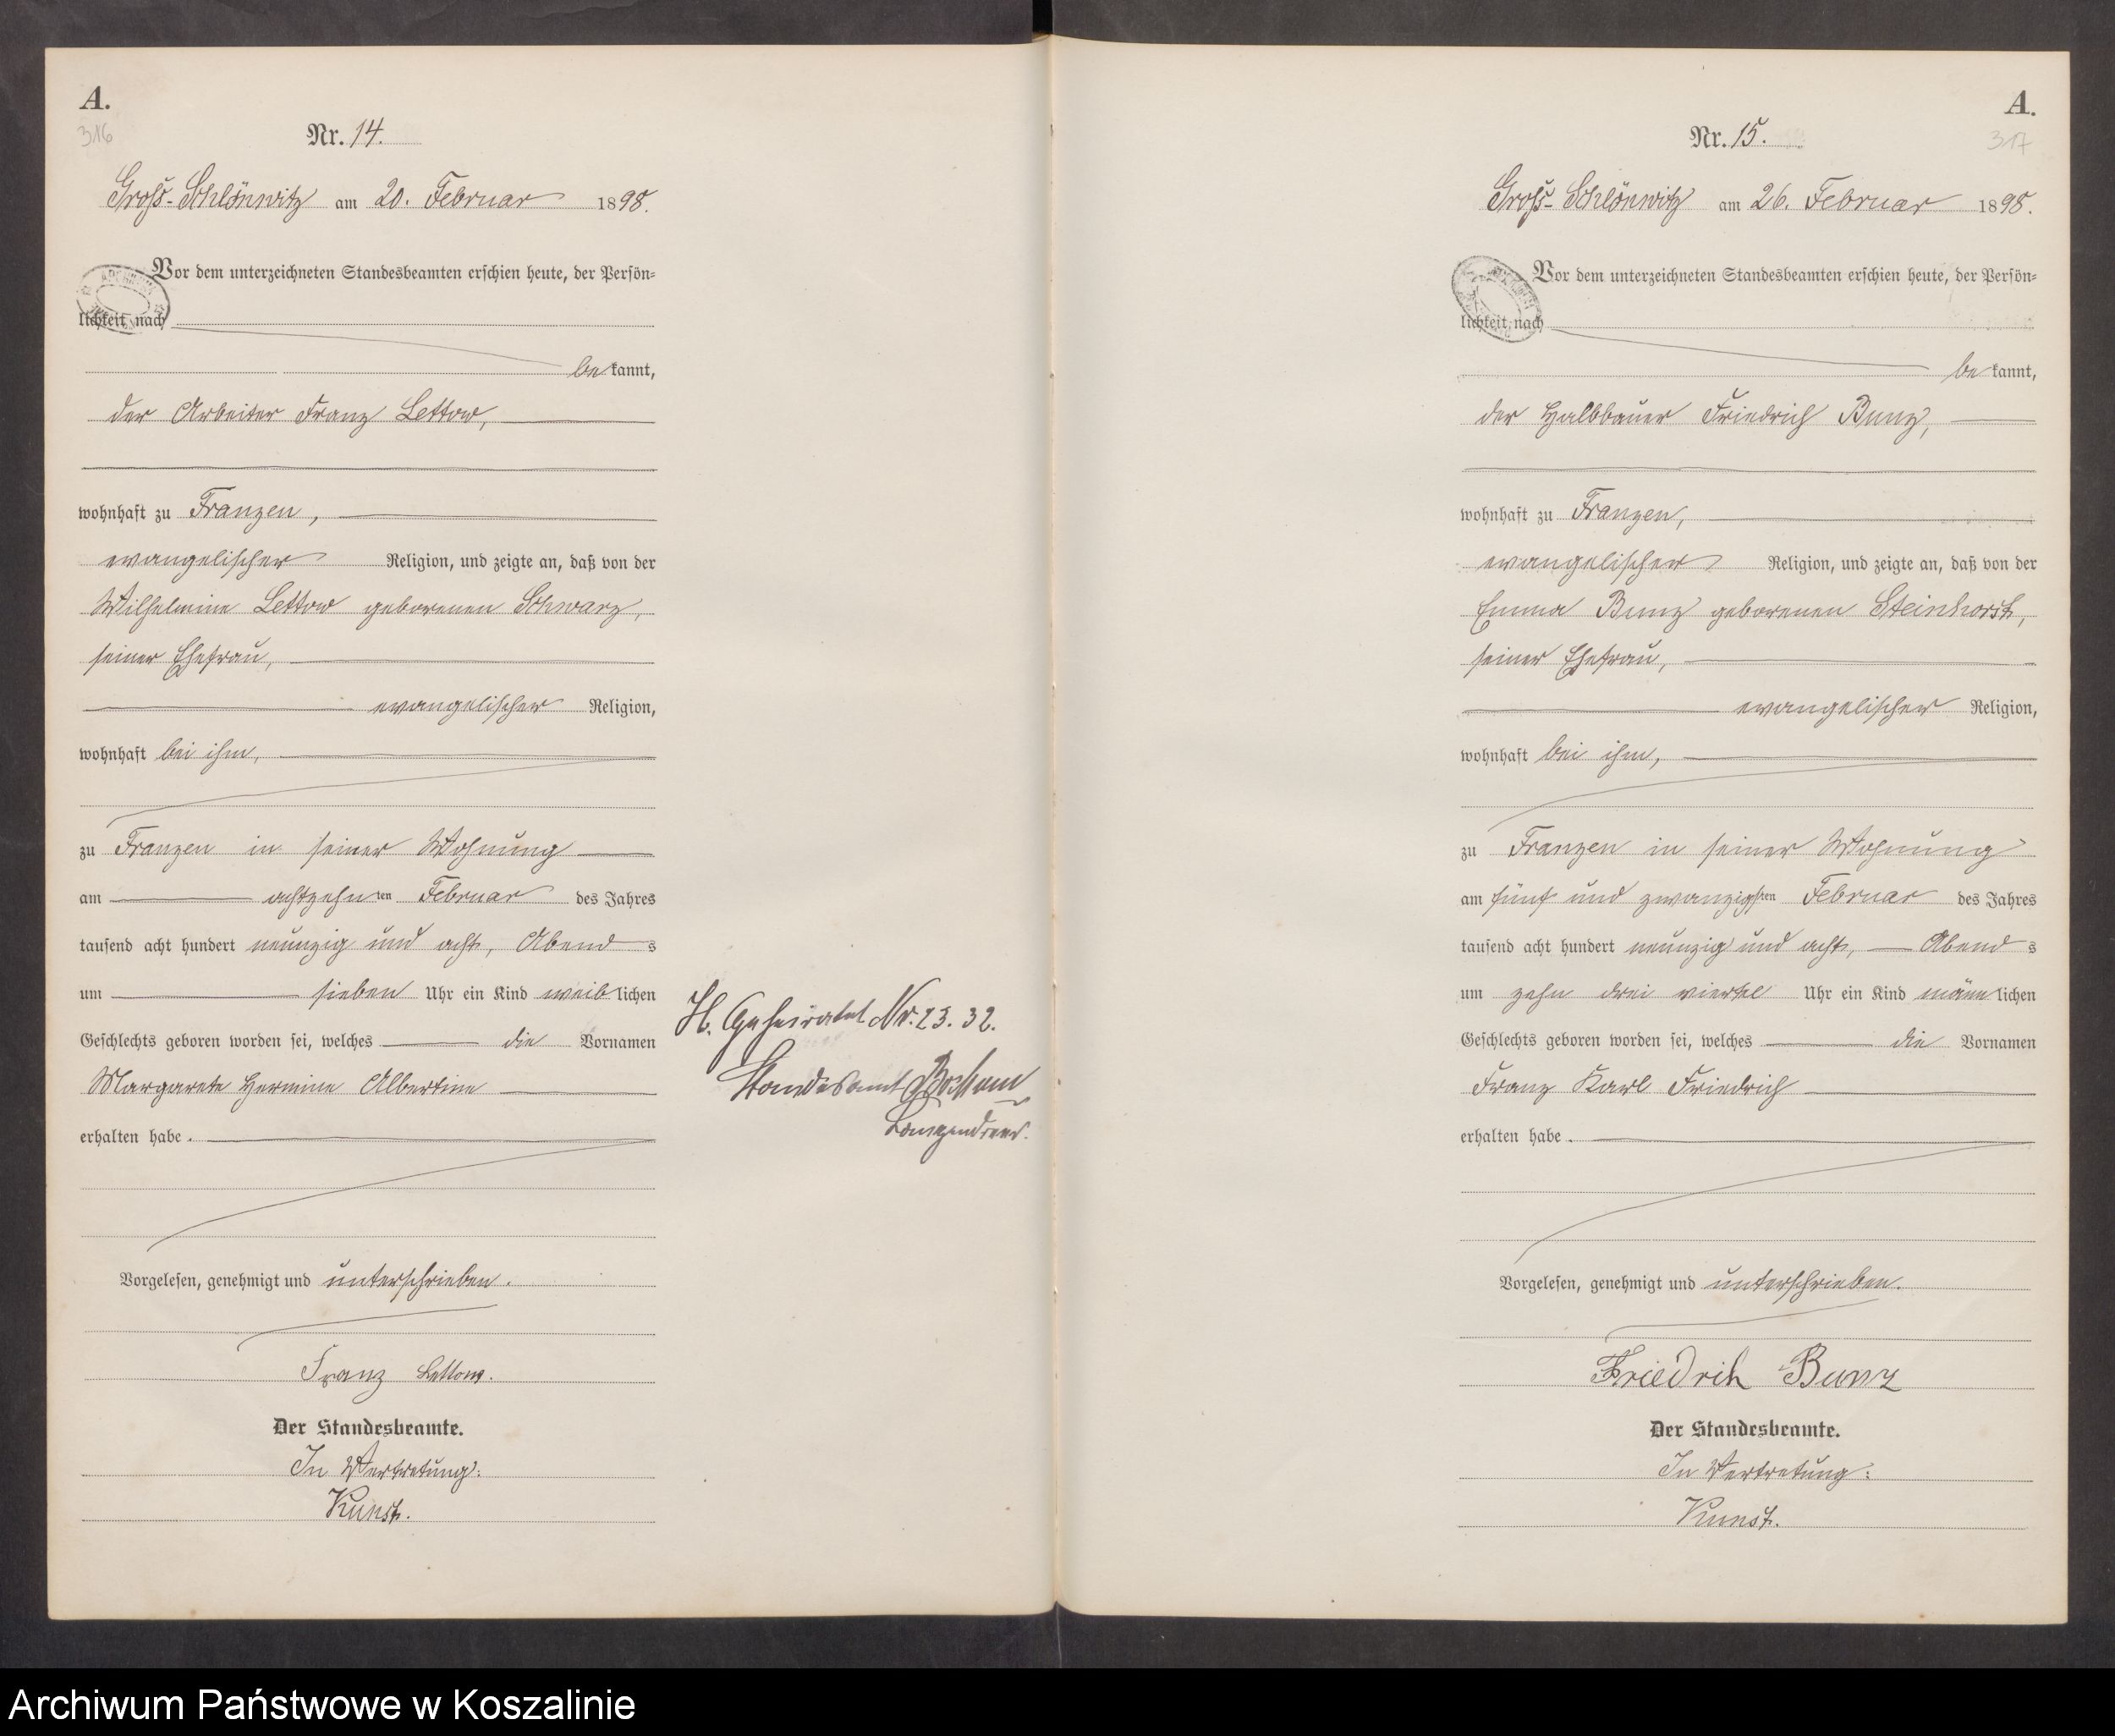 A.
316
Nr. 14.
Groß-Schlönwitz am 20. Februar 1898.
Vor dem unterzeichneten Standesbeamten erschien heute, der Persön-
lichkeit nach
bekannt,
der Arbeiter Franz Lettow,
wohnhaft zu Franzen,
evangelischer Religion, und zeigte an, daß von der
Wilhelmine Lettow geborenen Schwarz,
seiner Ehefrau,
evangelischer Religion,
wohnhaft bei ihm,
zu Franzen in seiner Wohnung
am achtzehnten Februar des Jahres
tausend acht hundert neunzig und acht, Abends
um sieben Uhr ein Kind weiblichen
Geschlechts geboren worden sei, welches die Vornamen
Margarete Hermine Albertine
erhalten habe.
Vorgelesen, genehmigt und unterschrieben.
Franz Lettow.
Der Standesbeamte.
In Vertretung:
Kunst.
H. Geheiratet Nr. 23. 32.
Standesamt Bochum
Langendreer.
A.
317
Nr. 15.
Groß-Schlönwitz am 26. Februar 1898.
Vor dem unterzeichneten Standesbeamten erschien heute, der Persön-
lichkeit nach
bekannt,
der Halbbauer Friedrich Bunz,
wohnhaft zu Franzen,
evangelischer Religion, und zeigte an, daß von der
Emma Bunz geborenen Steinhorst,
seiner Ehefrau,
evangelischer Religion,
wohnhaft bei ihm,
zu Franzen in seiner Wohnung
am fünf und zwanzigsten Februar des Jahres
tausend acht hundert neunzig und acht, Abends
um zehn drei viertel Uhr ein Kind männlichen
Geschlechts geboren worden sei, welches die Vornamen
Franz Karl Friedrich
erhalten habe.
Vorgelesen, genehmigt und unterschrieben.
Friedrih Bunz
Der Standesbeamte.
In Vertretung:
Kunst.
Archiwum Państwowe w Koszalinie